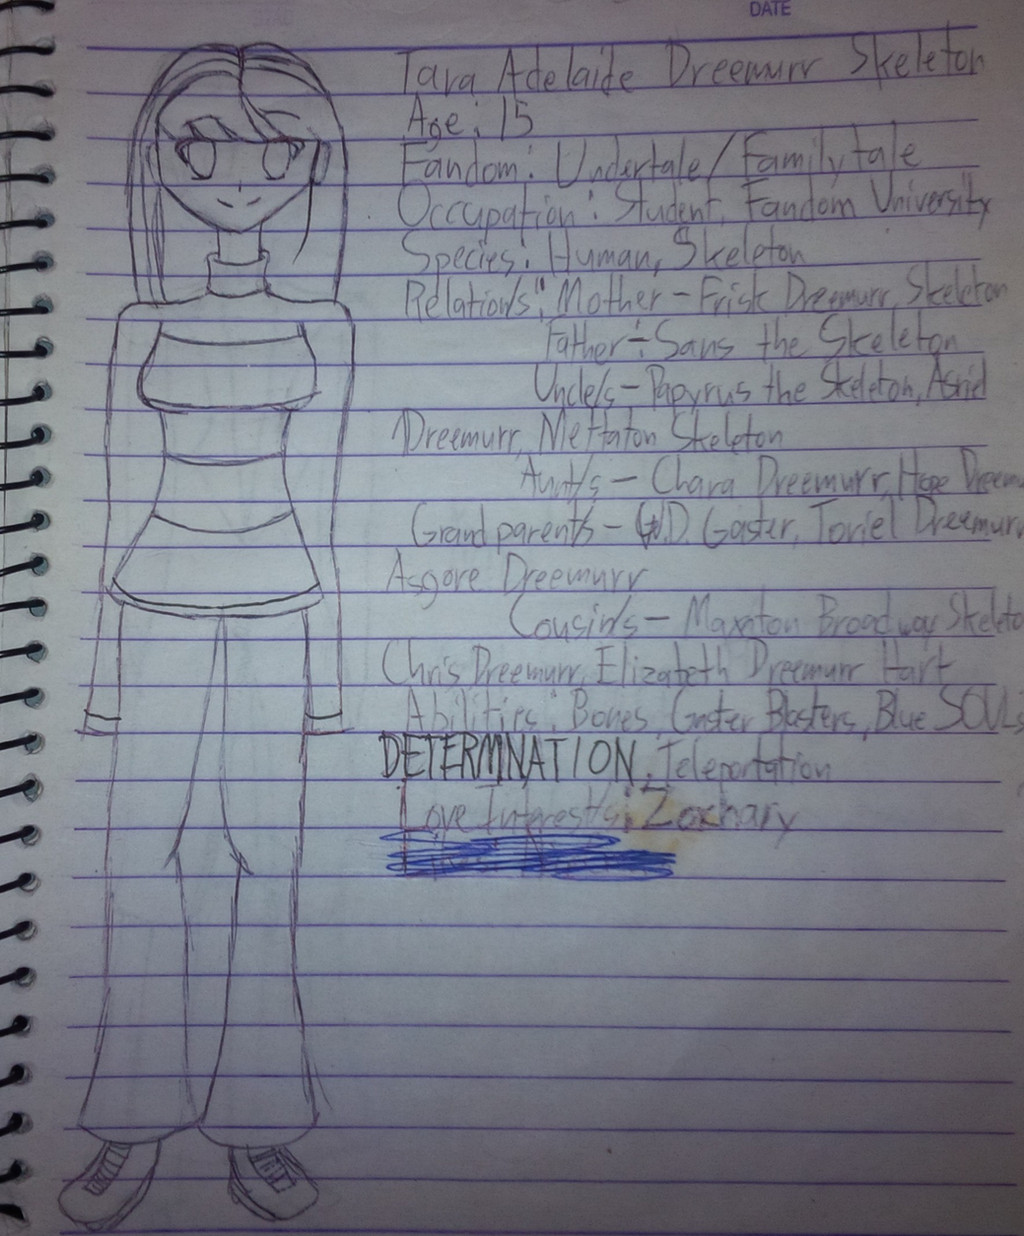 DATE
Tara Adelaide Dreemurr Skeleton
Age: 15
Fandom: Undertale/Familytale
Occupation: Student, Fandom University
Species: Human, Skeleton
Relation/s: Mother - Frisk Dreemurr Skeleton
Father - Sans the Skeleton
Uncle/s - Papyrus the Skeleton, Asriel
Dreemurr, Mettaton Skeleton
Aunt/s - Chara Dreemurr, Hope Dreemu
Grandparents - W.D. Gaster, Toriel Dreemurr
Asgore Dreemurr
Cousin/s - Maxaton Broadway Skeleto
Chris Dreemurr, Elizabeth Dreemurr Hart
Abilities: Bones, Gaster Blasters, Blue SOULs
DETERMNATION, Teleportation
Love Interest/s: Zachary